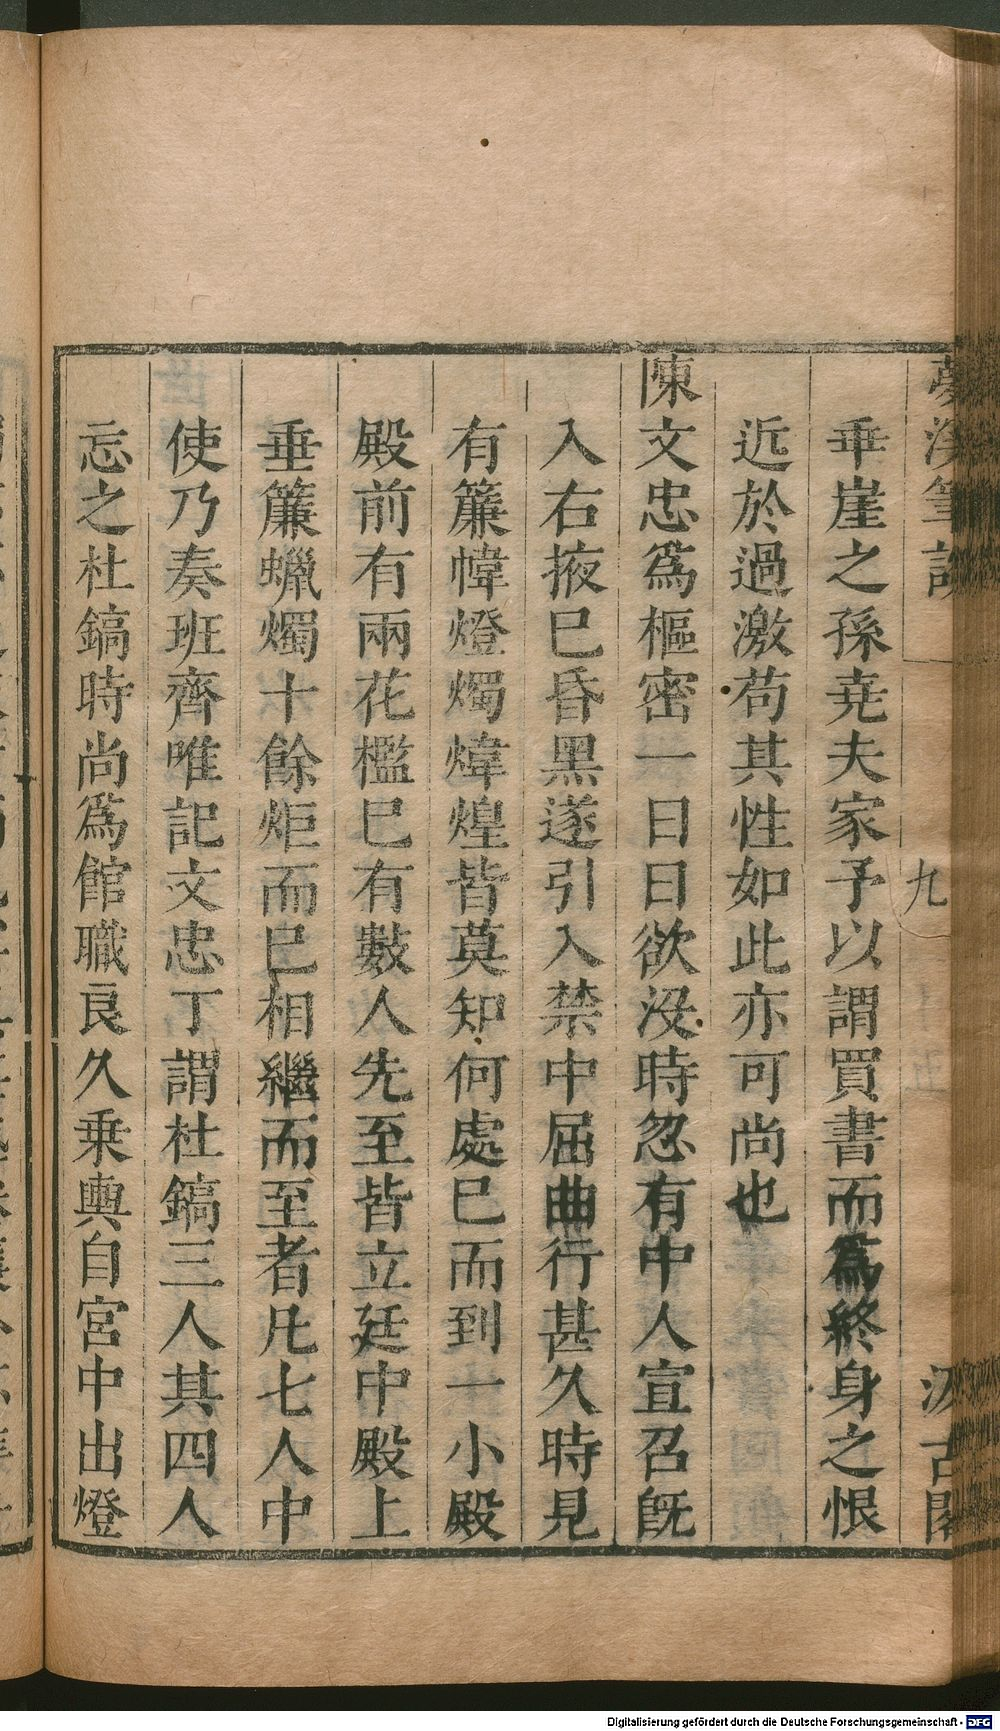 夢溪筆談 九 汲古閣
乖崖之孫堯夫家予以謂買書而爲終身之恨
近於過激苟其性如此亦可尚也
陳文忠爲樞密一日日欲没時忽有中人宣召旣
入右掖巳昏黑遂引入禁中屈曲行甚久時見
有簾幃燈燭煒煌皆莫知何處巳而到一小殿
殿前有兩花檻巳有數人先至皆立廷中殿上
垂簾蠟燭十餘炬而巳相繼而至者凡七人中
使乃奏班齊唯記文忠丁謂杜鎬三人其四人
忘之杜鎬時尚爲館職良久乗輿自宮中出燈
Digitalisierung gefördert durch die Deutsche Forschungsgemeinschaft - DFG